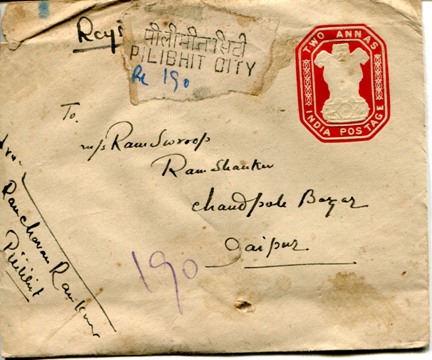 Regi
पीलीभीत सिटी
PILIBHIT CITY
R 190
TWO ANNAS
INDIA POSTAGE
To,
m/s Ram Swroop
Ram Shanker
Chandpole Bazar
Jaipur
190
From
Ramcharan Ram
Pilibhit